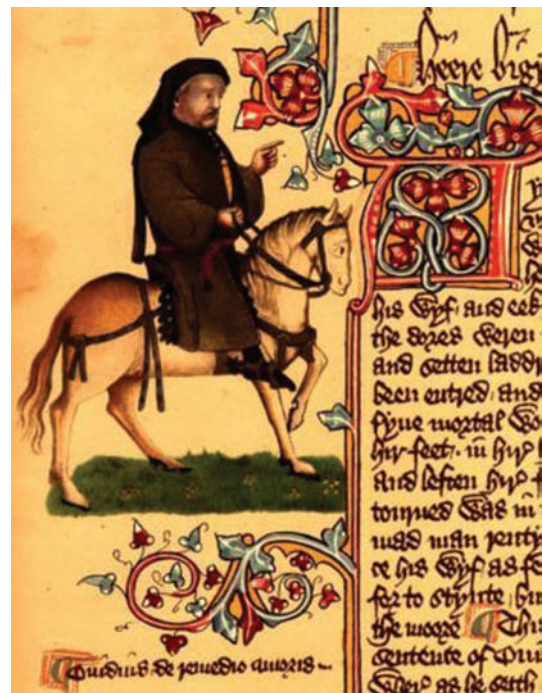 Heere bigy
A
his wyf and eek
the dores weren
and setten laddr
been entred and
fyue mortal wo
hir feet in hir
And leften hir f
tourned was in
mad man renty
ce his wyf as fe
for to stynte bu
the moore ¶ This
sentence of Oui
wher as he seith
¶ Ouidius de remedio amoris